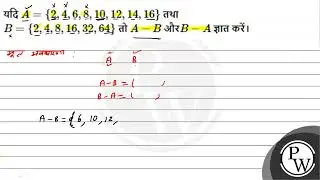 यदि A = {2, 4, 6, 8, 10, 12, 14, 16} तथा
B = {2, 4, 8, 16, 32, 64} तो A − B और B − A ज्ञात करें।
A B
A-B = (
B-A = (
A-B = { 6, 10, 12,
PW